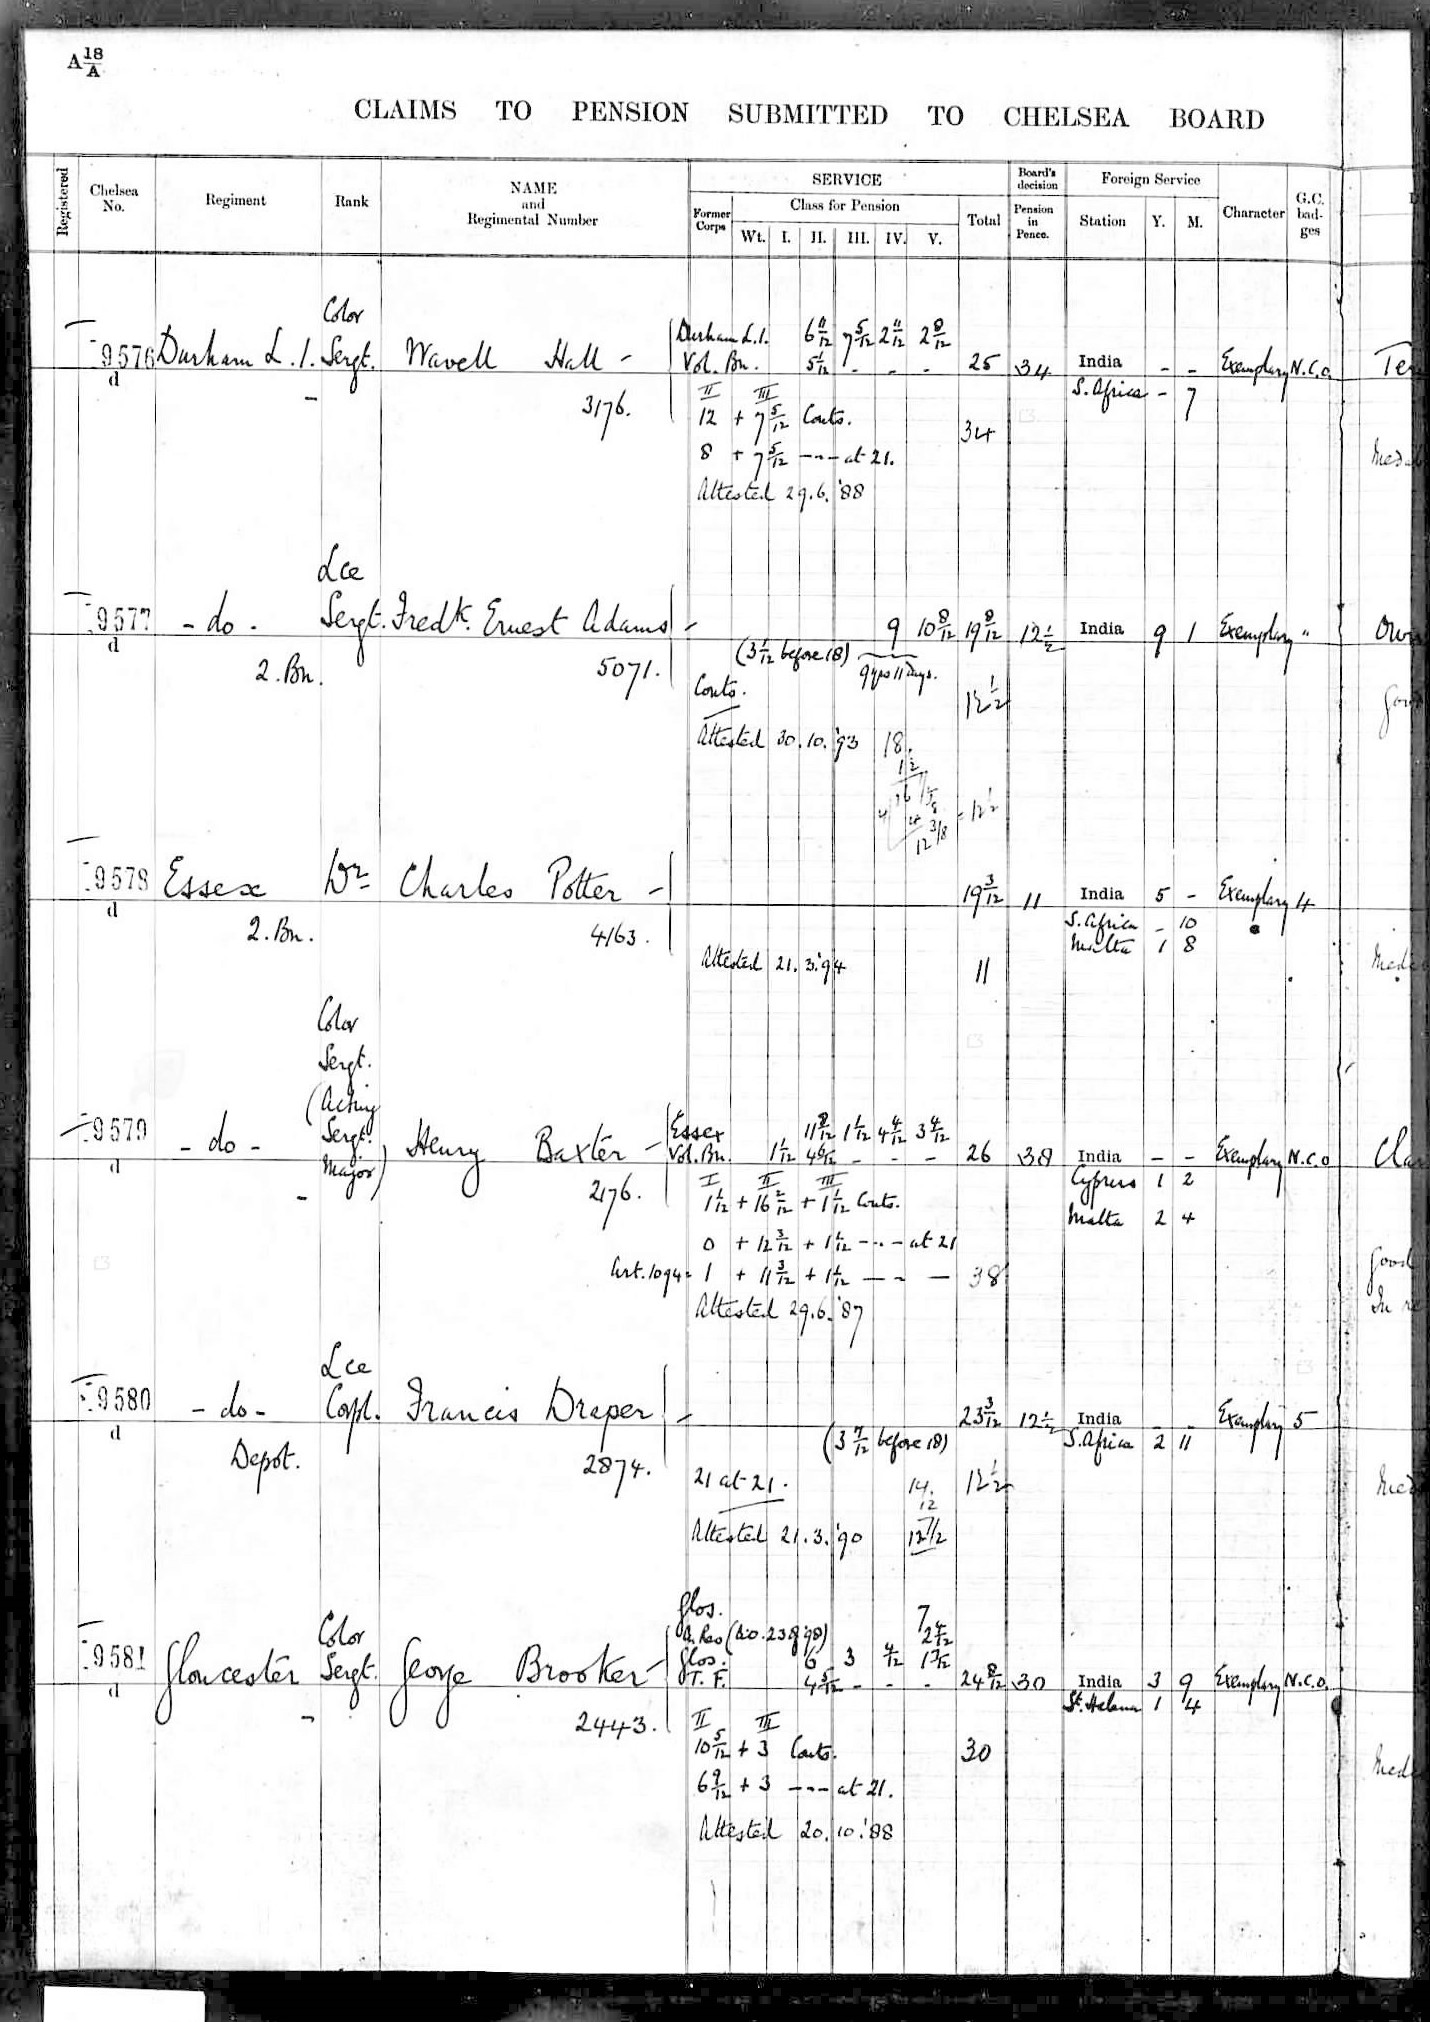 A 18/A
CLAIMS TO PENSION SUBMITTED TO CHELSEA BOARD
Registered
Chelsea No.
Regiment
Rank
NAME and Regimental Number
SERVICE
Former Corps
Class for Pension
Wt. I. II. III. IV. V.
Total
Board's decision
Pension in Pence.
Foreign Service
Station Y. M.
Character
G.C. bad-ges
Color
9576 Durham L.I. Sergt. Wavell Hall - Durham L.I. 6 11/12 7 5/12 2 11/12 2 8/12
d Vol. Bn. 5 1/12 - - - 25 34 India - - Exemplary N.C.O.
- 3176. II III S. Africa - 7
12 + 7 5/12 Conts. 34
8 + 7 5/12 --- at 21.
Attested 29.6.'88
Lce
9577 - do - Sergt. Fredk. Ernest Adams - 9 10 8/12 19 8/12 12 1/2 India 9 1 Exemplary "
d 2. Bn. 5071. (3 1/12 before 18) 9 yrs 11 days.
Conts. 12 1/2
Attested 30.10.'93 18.
= 12 1/2
12 3/8
9578 Essex Dr. Charles Potter - 19 3/12 11 India 5 - Exemplary 4
d 2. Bn. 4163. S. Africa - 10
Malta 1 8
Attested 21.3.'94 11
Color
Sergt.
(Acting
9579 - do - Sergt. Henry Baxter - Essex 11 8/12 1 1/12 4 4/12 3 4/12
d Major) Vol. Bn. 1 1/12 4 6/12 - - - 26 38 India - - Exemplary N.C.O
- 2176. I II III Cyprus 1 2
1 1/12 + 16 2/12 + 1 1/12 Conts. Malta 2 4
0 + 12 3/12 + 1 1/12 --- at 21
Art. 1094 = 1 + 11 3/12 + 1 1/12 - - - 38
Attested 29.6.'87
Lce
9580 - do - Corpl. Francis Draper - 23 3/12 12 1/2 India - - Exemplary 5
d Depot. 2874. (3 7/12 before 18) S. Africa 2 11
21 at 21. 14. 12 1/2
12
Attested 21.3.'90 12 1/2
Glos. 7
Color A. Res (Dio. 23 8 98) 2 4/12
9581 Gloucester Sergt. George Brooker - Glos. 6 3 4/12 1 3/12
d T.F. 4 5/12 - - - 24 8/12 30 India 3 9 Exemplary N.C.O.
- 2443. II III St. Helena 1 4
10 5/12 + 3 Conts. 30
6 9/12 + 3 --- at 21.
Attested 20.10.'88